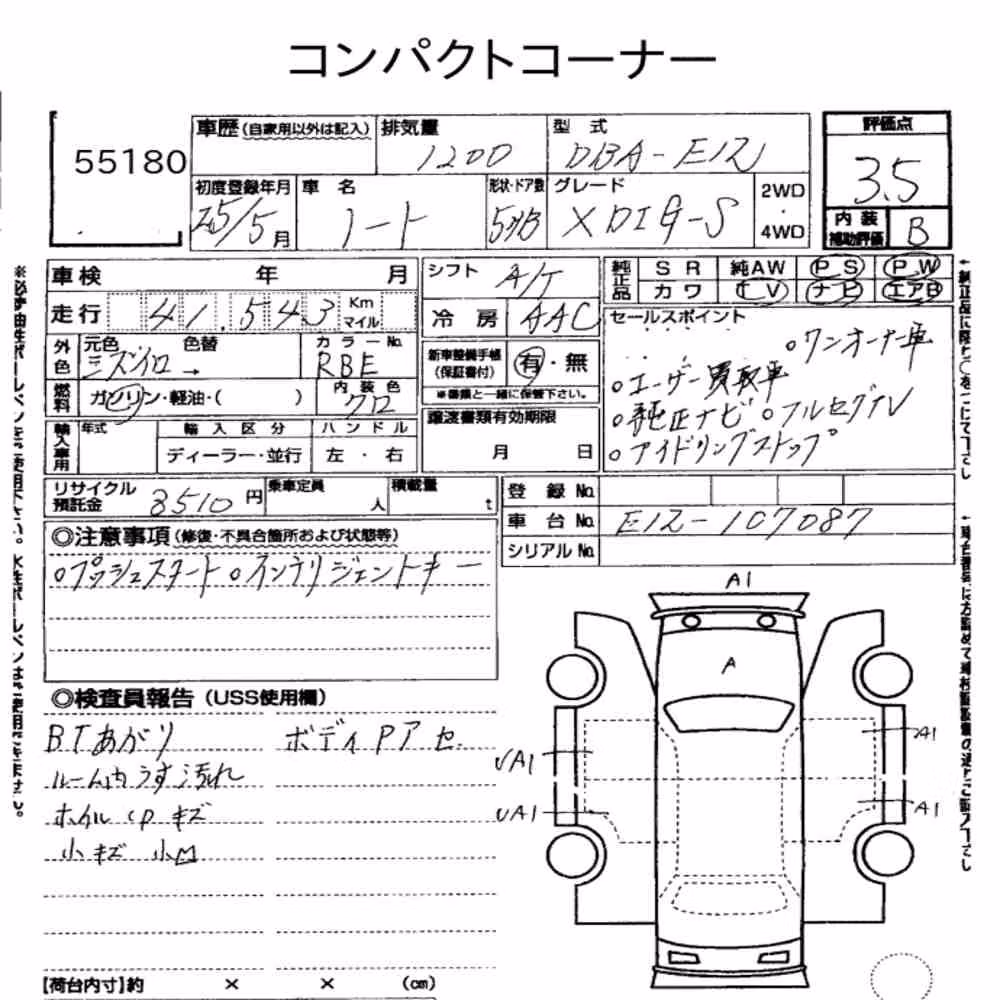 コンパクトコーナー
55180
車歴(自家用以外は記入) 排気量 1200 型式 DBA-E12
評価点 3.5
初度登録年月 25/5月 車名 ノート 形状・ドア数 5HB グレード X DIG-S 2WD・4WD
内装補助評価 B
車検 年 月
シフト A/T
純正品 SR 純AW PS PW
カワ TV ナビ エアB
走行 41.543 Km マイル
冷房 AAC
セールスポイント
○ワンオーナー車
○ユーザー買取車
○純正ナビ ○フルセグTV
○アイドリングストップ
外色 元色 ミズイロ 色替 → カラーNo. RBE
新車整備手帳(保証書付) 有・無
※書類と一緒に保管下さい。
燃料 ガソリン・軽油・( ) 内装色 クロ
譲渡書類有効期限
月 日
輸入車用 年式 輸入区分 ハンドル
ディーラー・並行 左・右
リサイクル預託金 8510円 乗車定員 人 積載量 t
登録No.
車台No. E12-107087
シリアルNo.
◎注意事項(修復・不具合箇所および状態等)
○プッシュスタート ○インテリジェントキー
◎検査員報告(USS使用欄)
BTあがり ボディPアセ
ルーム内うす汚れ
ホイルCPキズ
小キズ 小凹
【荷台内寸】約 × × (cm)
A1
A
UA1
UA1
A1
A1